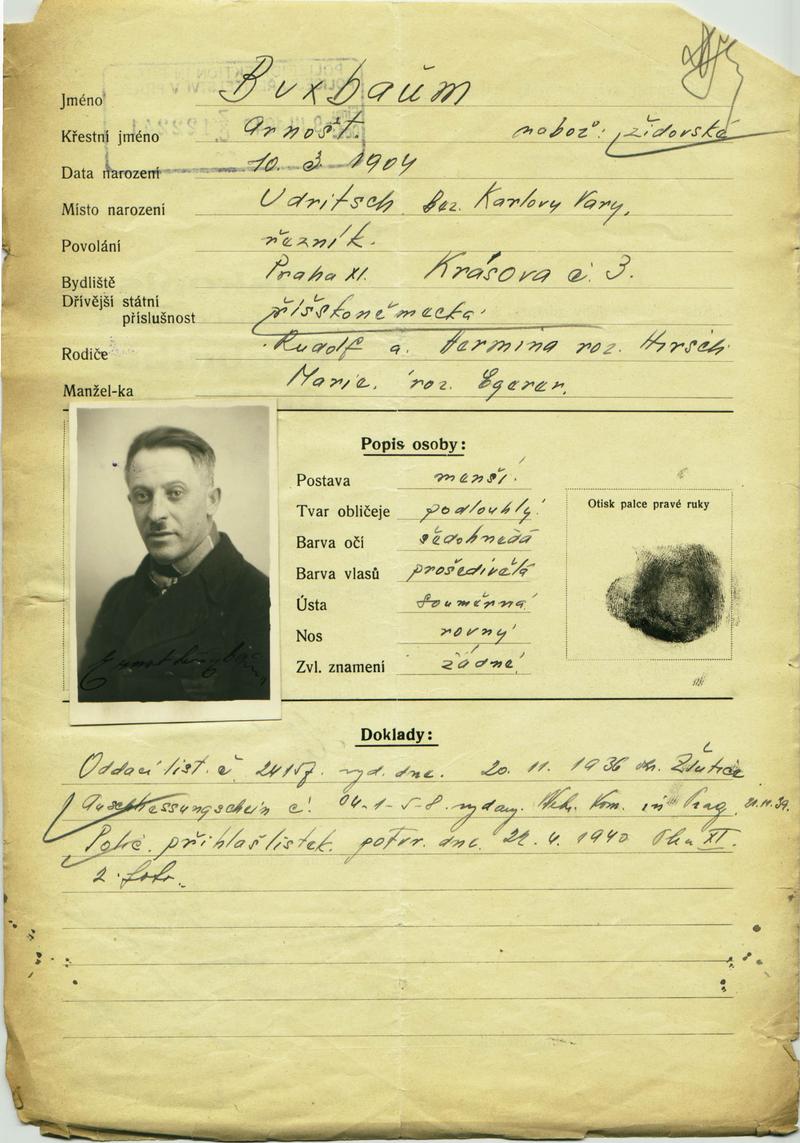 Jméno Buxbaum
Křestní jméno Arnošt. nábož: židovské
Data narození 10. 3 1904
Místo narození Udritsch bez. Karlovy Vary.
Povolání řezník.
Bydliště Praha XI. Krásova č. 3.
Dřívější státní
příslušnost říšskoněmecká
Rodiče Rudolf a. Hermina roz. Hirsch
Manžel-ka Marie. roz. Egerer.
Popis osoby:
Postava menší
Tvar obličeje podlouhlý
Barva očí šedohnědá
Barva vlasů prošedivělá
Ústa souměrná
Nos rovný
Zvl. znamení žádné
Otisk palce pravé ruky
Doklady:
Oddací list. č. vyd. dne. 20. 11. 1936
č. 04-1-5-8. vydaný. Weh. Kom. in Prag
Polic. přihlaš. lístek. potvr. dne. 22. 4. 1940 XI.
2 foto.